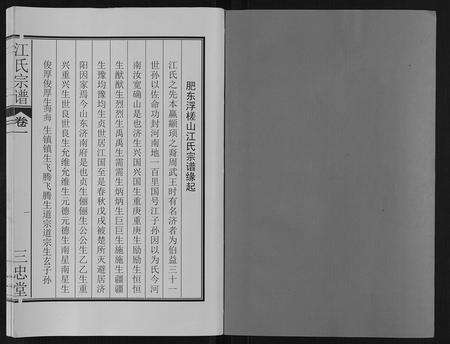 肥东浮槎山江氏宗谱缘起
江氏之先本嬴颛顼之裔周武王时有名济者为伯益三十一
世孙以佐命功封河南地一百里国号江子孙因以为氏今河
南汝宁确山是也济生兴国兴国生重庚重庚生励励生恒恒
生猷猷生烈烈生禹禹生需需生炳炳生巨巨生施施生疆疆
生豫均豫均生贞世居江国至是春秋戊戌被楚所灭避居济
阳因家焉今山东济南府是也贞生俪俪生公公生乙乙生重
兴重兴生世良世良生允维允维生元德元德生南星南星生
俊厚俊厚生海海生镇镇生飞腾飞腾生道宗道宗生玄子孙
江氏宗谱
卷一
三忠堂